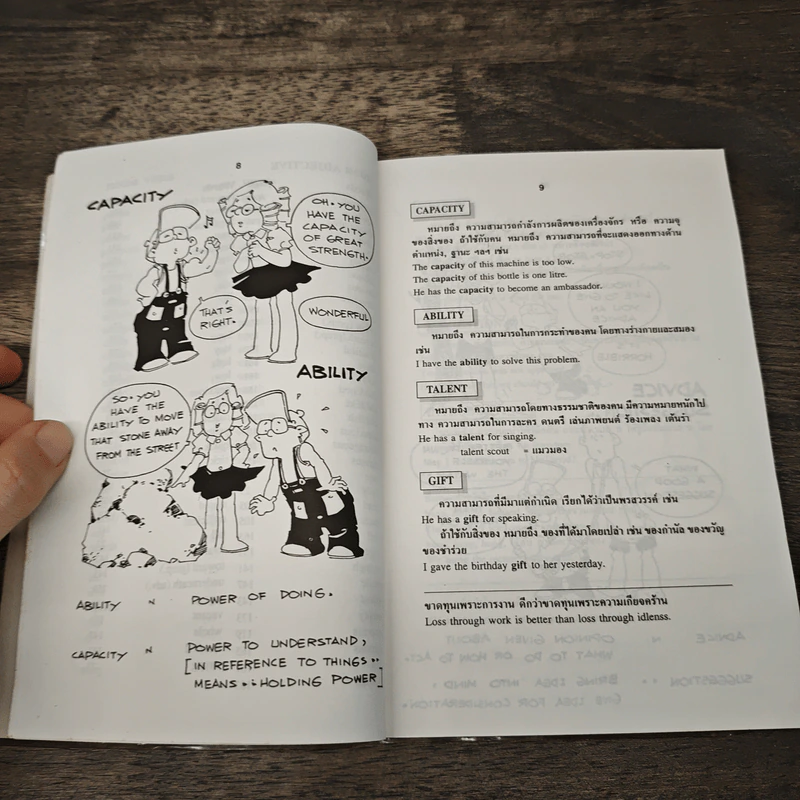 8
CAPACITY
OH. YOU
HAVE THE
CAPACITY
OF GREAT
STRENGTH.
THAT'S
RIGHT.
WONDERFUL
ABILITY
SO. YOU
HAVE THE
ABILITY TO MOVE
THAT STONE AWAY
FROM THE STREET
ABILITY N POWER OF DOING.
CAPACITY N POWER TO UNDERSTAND,
[IN REFERENCE TO THINGS..
MEANS.:.HOLDING POWER]
9
CAPACITY
หมายถึง ความสามารถกำลังการผลิตของเครื่องจักร หรือ ความจุ
ของสิ่งของ ถ้าใช้กับคน หมายถึง ความสามารถที่จะแสดงออกทางด้าน
ตำแหน่ง, ฐานะ ฯลฯ เช่น
The capacity of this machine is too low.
The capacity of this bottle is one litre.
He has the capacity to become an ambassador.
ABILITY
หมายถึง ความสามารถในการกระทำของคน โดยทางร่างกายและสมอง
เช่น
I have the ability to solve this problem.
TALENT
หมายถึง ความสามารถโดยทางธรรมชาติของคน มีความหมายหนักไป
ทาง ความสามารถในการละคร ดนตรี เล่นภาพยนต์ ร้องเพลง เต้นรำ
He has a talent for singing.
talent scout = แมวมอง
GIFT
ความสามารถที่มีมาแต่กำเนิด เรียกได้ว่าเป็นพรสวรรค์ เช่น
He has a gift for speaking.
ถ้าใช้กับสิ่งของ หมายถึง ของที่ได้มาโดยเปล่า เช่น ของกำนัล ของขวัญ
ของชำร่วย
I gave the birthday gift to her yesterday.
ขาดทุนเพราะการงาน ดีกว่าขาดทุนเพราะความเกียจคร้าน
Loss through work is better than loss through idlenss.